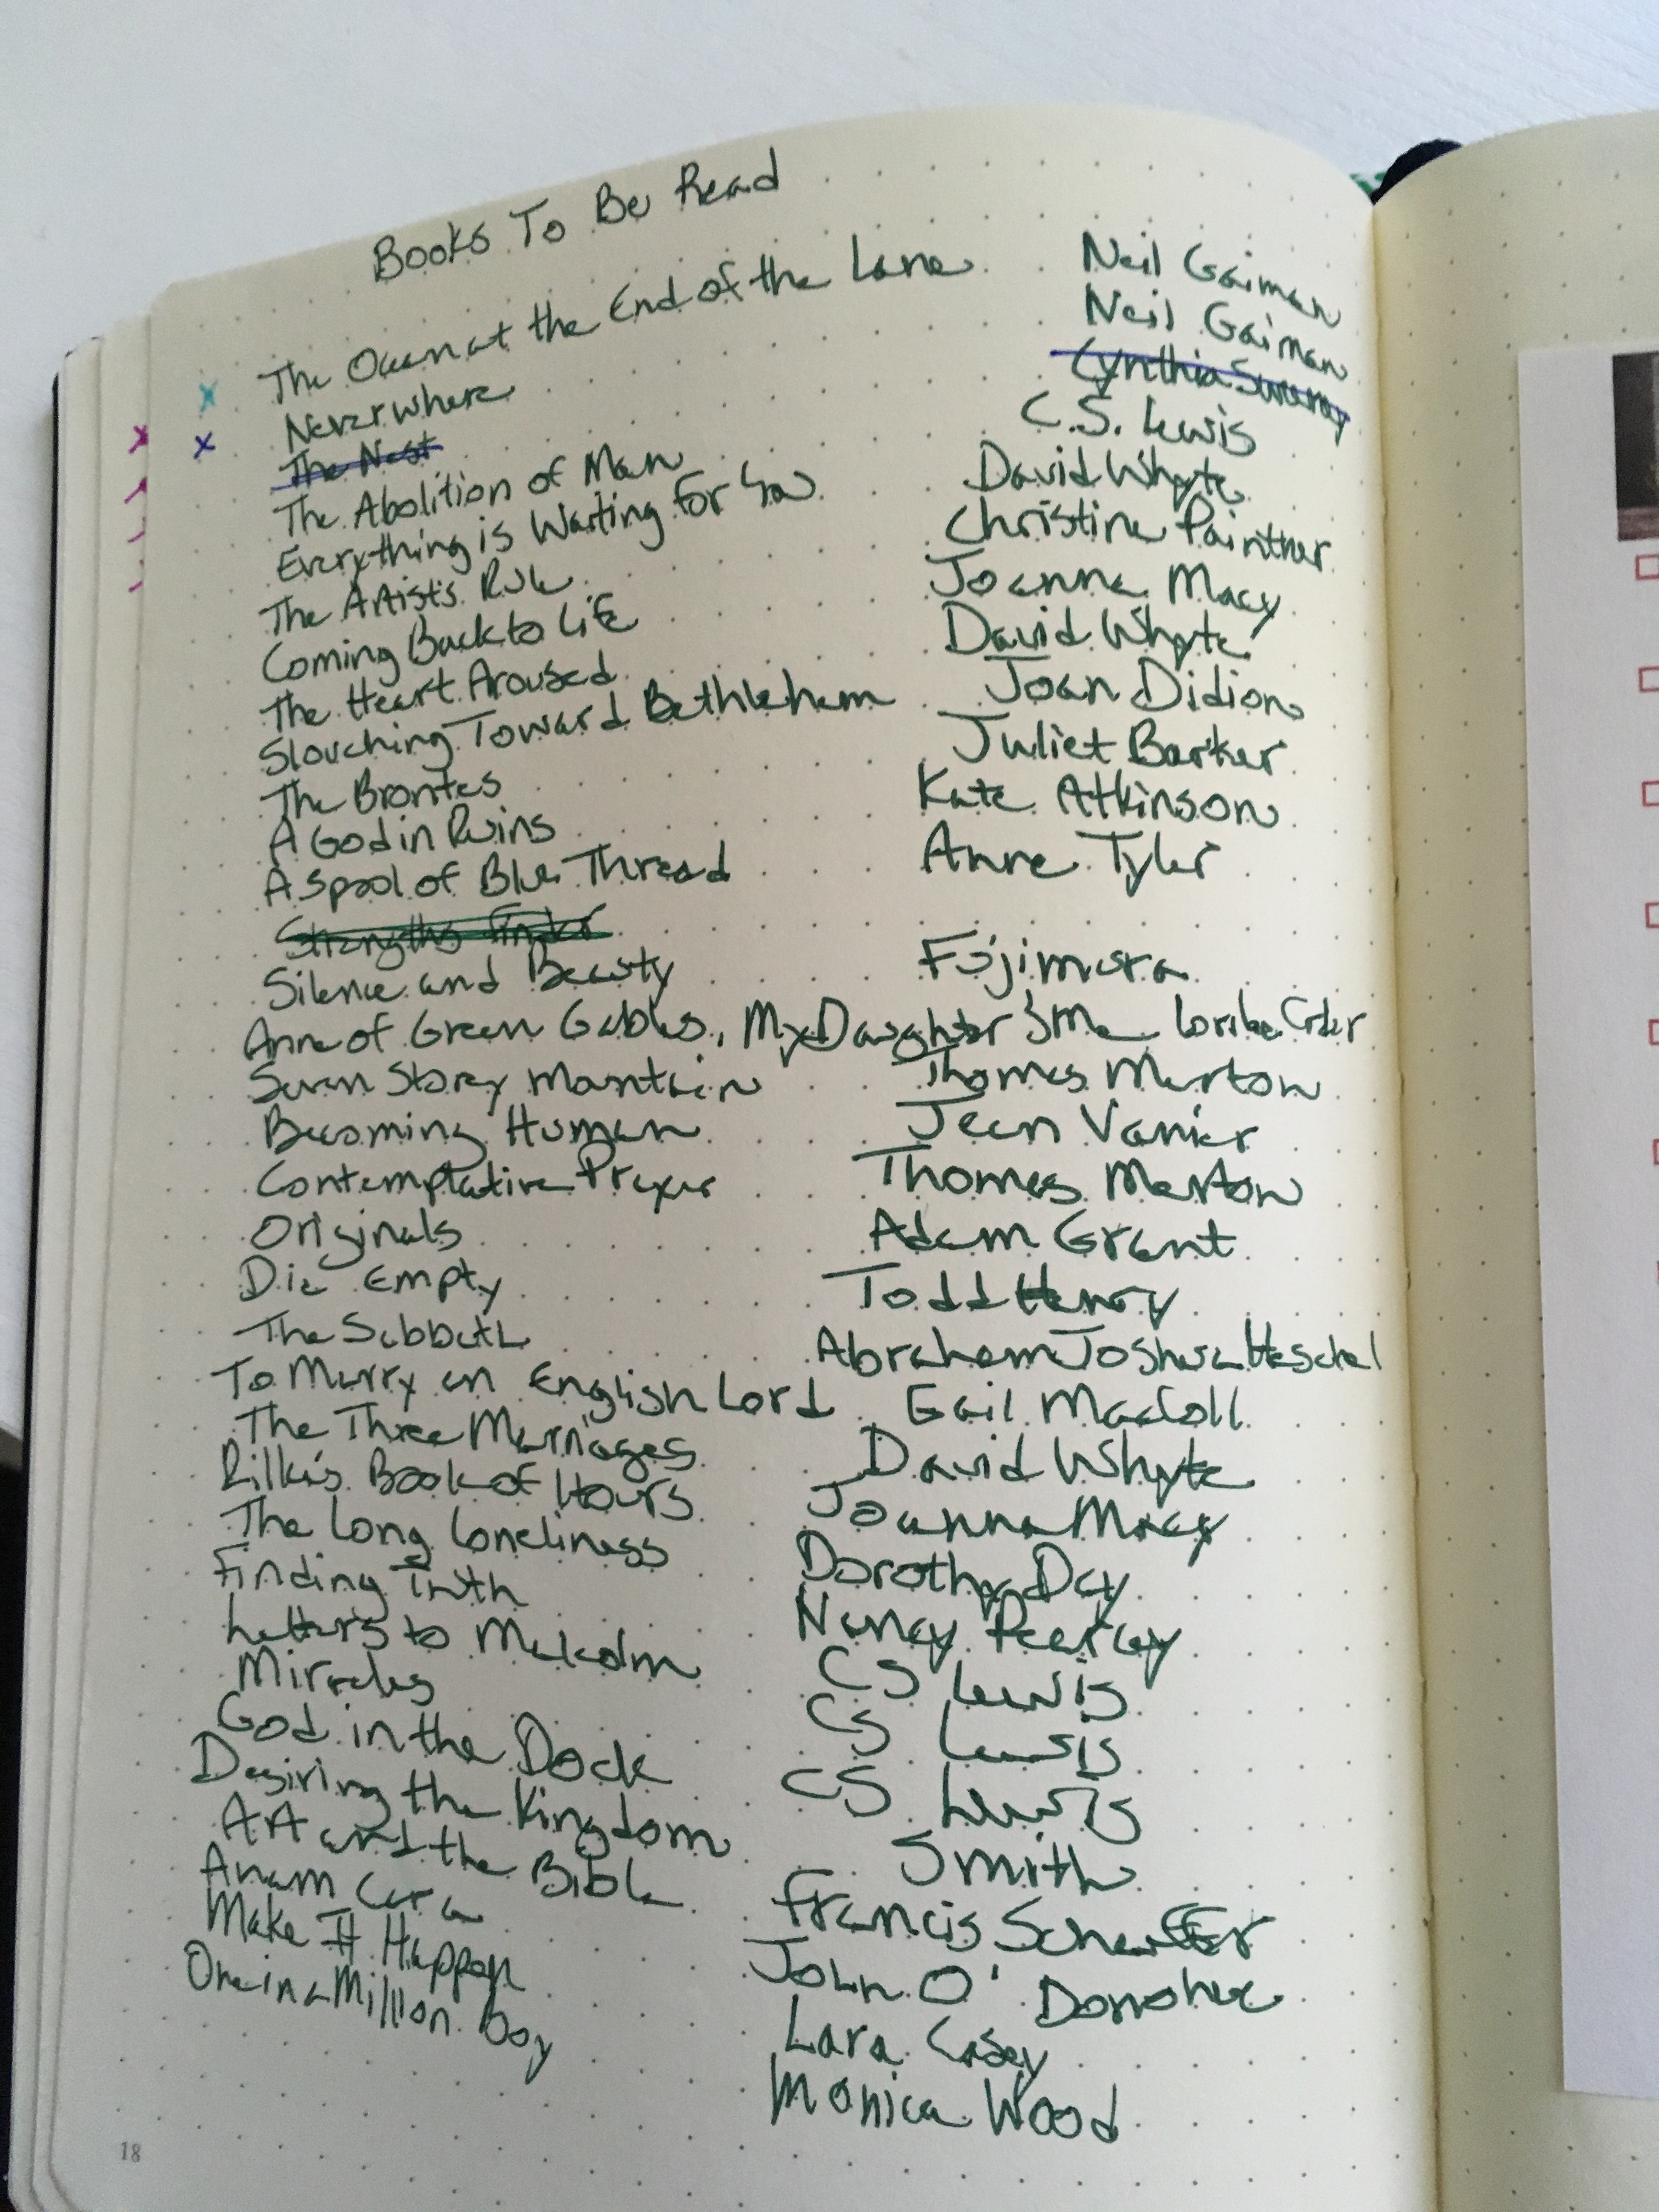 Books To Be Read
The Ocean at the End of the Lane Neil Gaiman
Neverwhere Neil Gaiman
The Nest Cynthia Sweeney
The Abolition of Man C.S. Lewis
Everything is Waiting for You David Whyte
The Artist's Rule Christine Painther
Coming Back to Life Joanna Macy
The Heart Aroused David Whyte
Slouching Toward Bethlehem Joan Didion
The Brontes Juliet Barker
A God in Ruins Kate Atkinson
A Spool of Blue Thread Anne Tyler
Strengths Finder
Silence and Beauty Fujimura
Anne of Green Gables, My Daughter & Me Lorilee Crker
Seven Story Mountain Thomas Merton
Becoming Human Jean Vanier
Contemplative Prayer Thomas Merton
Originals Adam Grant
Die Empty Todd Henry
The Sabbath Abraham Joshua Heschel
To Marry an English Lord Gail MacColl
The Three Marriages David Whyte
Rilke's Book of Hours Joanna Macy
The Long Loneliness Dorothy Day
Finding Truth Nancy Pearcey
Letters to Malcolm CS Lewis
Miracles CS Lewis
God in the Dock CS Lewis
Desiring the Kingdom Smith
Art and the Bible Francis Schaeffer
Anam Cara John O'Donohue
Make It Happen Lara Casey
One in a Million Boy Monica Wood
18